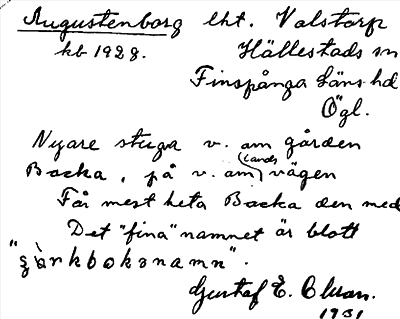 Augustenborg lht. Valstorp
kb 1928. Hällestads sn
Finspånga läns hd
Ögl.
Nyare stuga v. om gården
Backa, på v. om (lands)vägen
Får mest heta Backa den med
Det "fina" namnet är blott
"kyrkboksnamn".
Gustaf E. Olsson.
1931